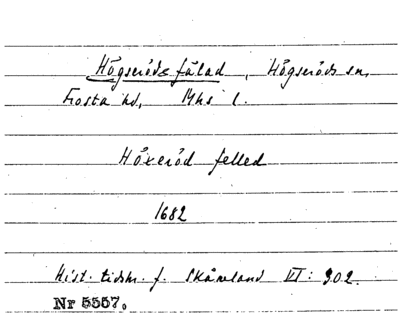 Högseröds fälad, Högseröds sn,
Frosta hd, Mhs l.
Höxeröd felled
1682
Hist. tidskr. f. Skåneland VI: 302.
Nr 5557.